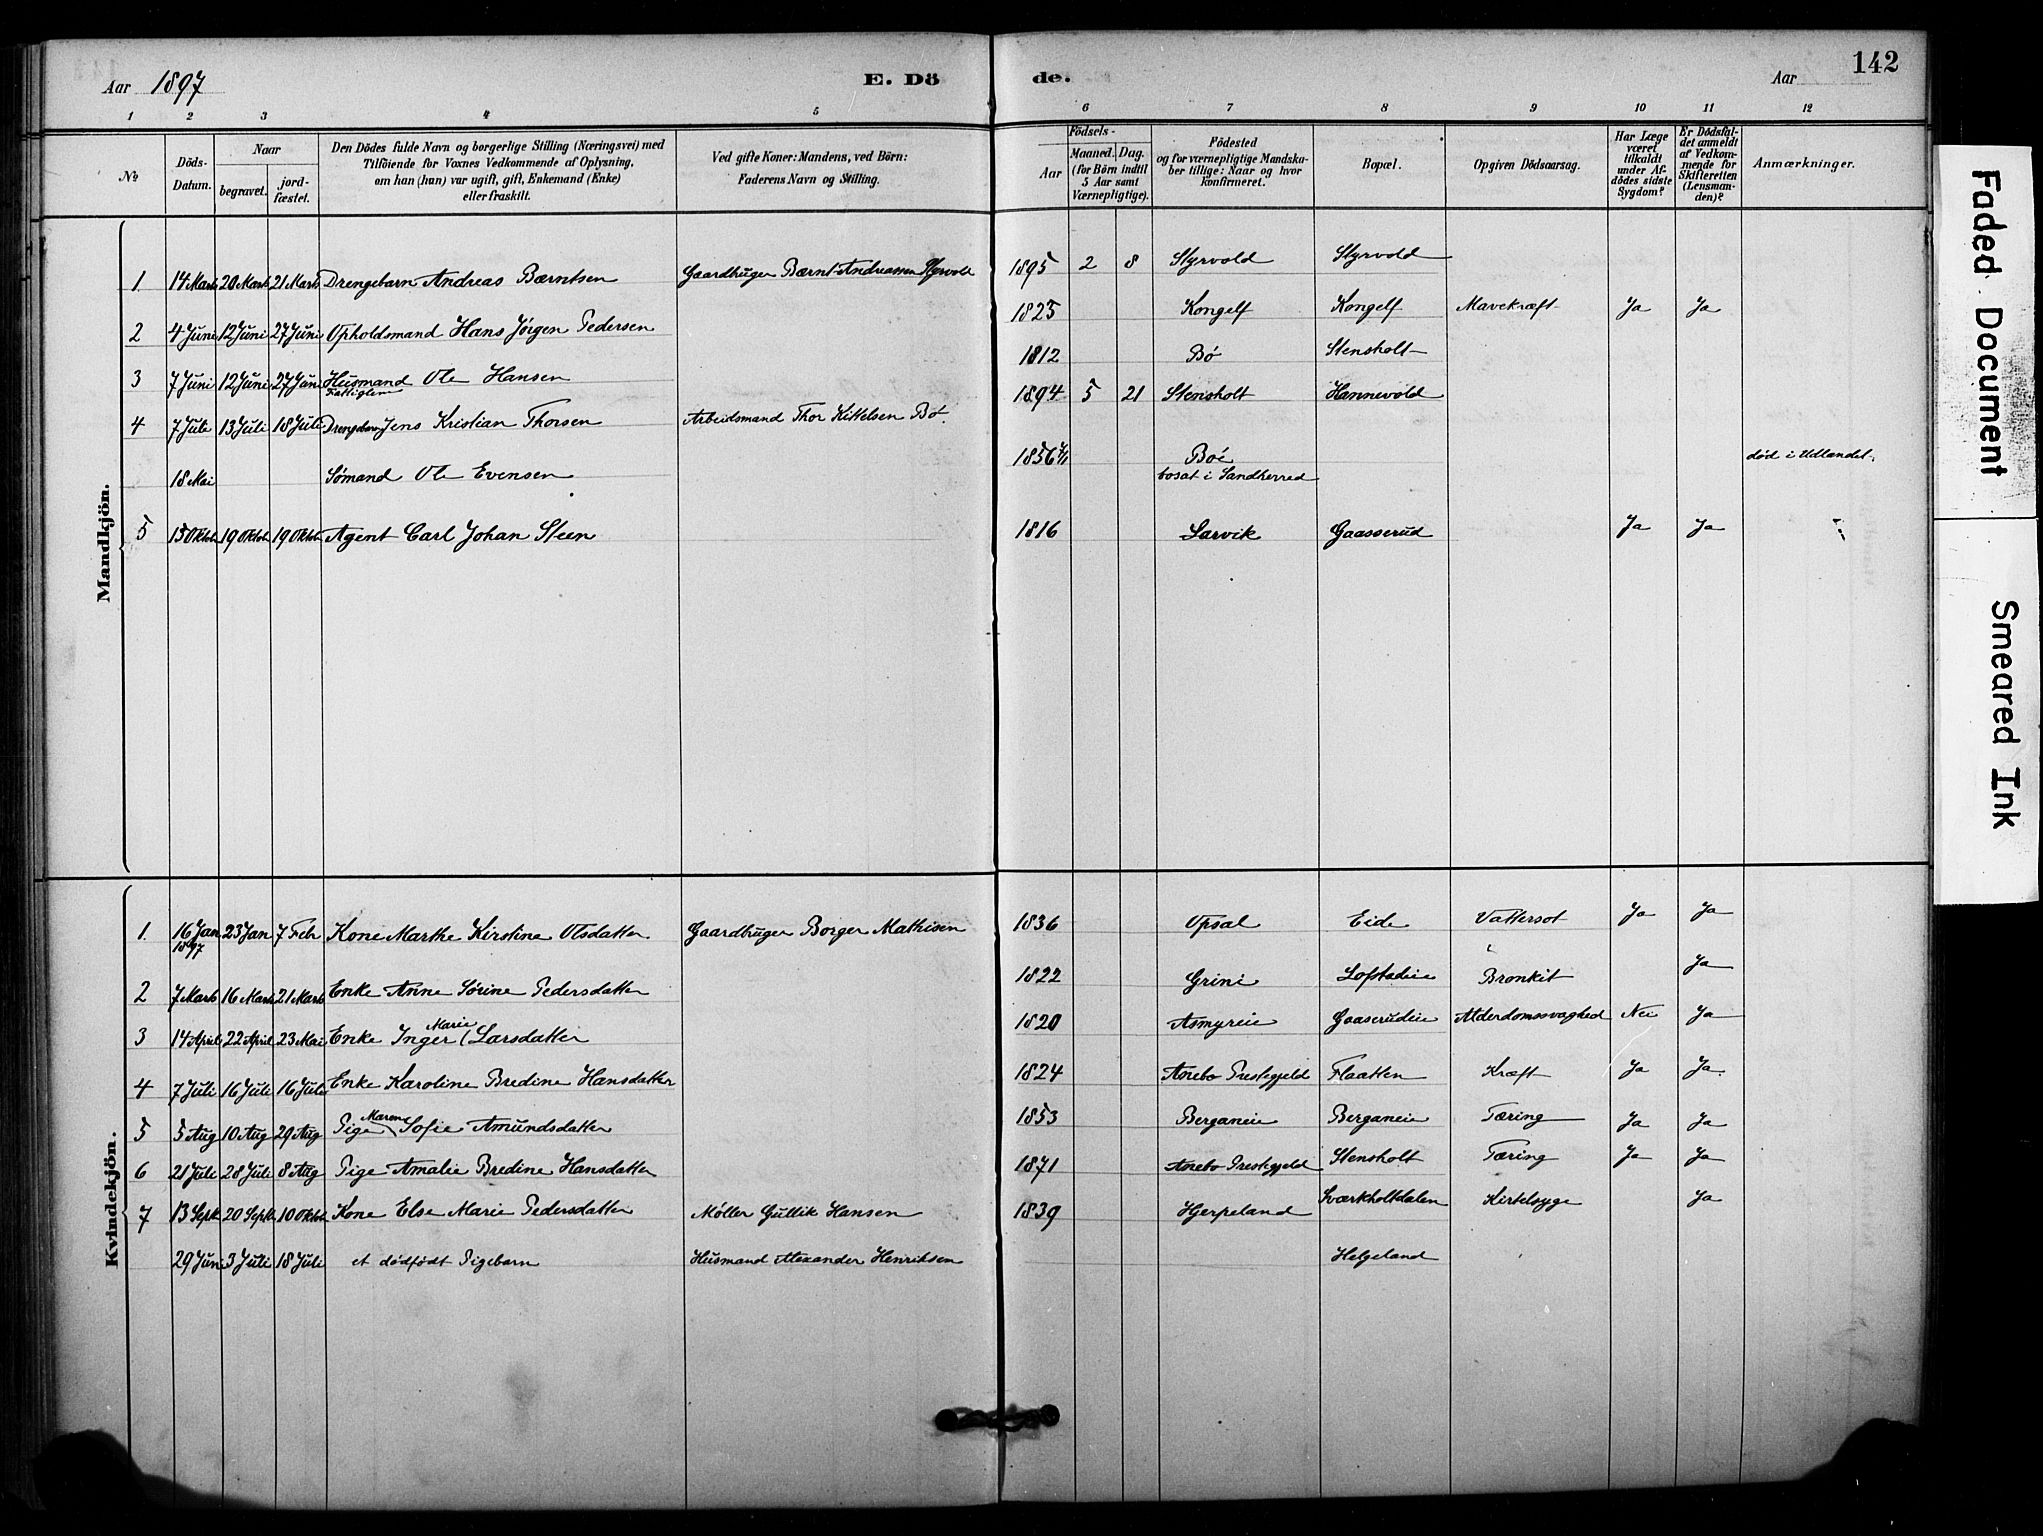 Aar 1897
E. Dö
de.
Aar
142
1 2 3 4 5 6 7 8 9 10 11 12
No
Döds-
Datum.
Naar
begravet.
jord-
fæstet.
Den Dödes fulde Navn og borgerlige Stilling (Næringsvei) med
Tilföiende for Voxnes Vedkommende af Oplysning,
om han (hun) var ugift, gift, Enkemand (Enke)
eller fraskilt.
Ved gifte Koner: Mandens, ved Börn:
Faderens Navn og Stilling.
Födsels-
Aar
Maaned. Dag.
(for Börn indtil
5 Aar samt
Værnepligtige).
Födested
og for værnepligtige Mandska-
ber tillige: Naar og hvor
konfirmeret.
Bopæl.
Opgiven Dödsaarsag.
Har Læge
været
tilkaldt
under Af-
dödes sidste
Sygdom?
Er Dödsfal-
det anmeldt
af Vedkom-
mende for
Skifteretten
(Lensman-
den)?
Anmærkninger.
Mandkjön.
1 14 Marts 20 Marts 21 Marts Drengebarn Andreas Bærntsen Gaardbruger Bærnt Andreassen Styrvold 1895 2 8 Styrvold Styrvold
2 4 Juni 12 Juni 27 Juni Opholdsmand Hans Jörgen Pedersen 1825 Kongelf Kongelf Mavekræft Ja Ja
3 7 Juni 12 Juni 27 Juni Husmand Ole Hansen 1812 Bö Stensholt
Fattiglem
4 7 Juli 13 Juli 18 Juli Drengebarn Jens Kristian Thorsen Arbeidsmand Thor Kittelsen Bö. 1894 5 21 Stensholt Hannevold
18 Mai Sömand Ole Evensen 1856 Böe død i Udlandet.
bosat i Sandherred
5 15 Oktob 19 Oktob 19 Oktob Agent Carl Johan Steen 1816 Larvik Gaasserud Ja Ja
Kvindekjön.
1 16 Jan 23 Jan 7 Febr Kone Marthe Kirstine Olsdatter Gaardbruger Borger Mathisen 1836 Opsal Eide Vattersot Ja Ja
1897
2 7 Marts 16 Marts 21 Marts Enke Anne Sörine Pedersdatter 1822 Grini Lofstadeie Bronkit Ja
3 14 April 22 April 23 Mai Enke Inger Marie Larsdatter 1820 Asmyreie Gaaserudeie Alderdomssvaghed Nei Ja
4 7 Juli 16 Juli 16 Juli Enke Karoline Bredine Hansdatter 1824 Anebo Prestegjeld Flaatten Kræft Ja Ja.
5 5 Aug 10 Aug 29 Aug Pige Maren Sofie Amundsdatter 1853 Berganeie Berganeie Tæring Ja Ja
6 21 Juli 28 Juli 8 Aug Pige Amalie Bredine Hansdatter 1871 Anebo Prestegjeld Stensholt Tæring Ja Ja
7 13 Sept 20 Sept 10 Oktob Kone Else Marie Pedersdatter Møller Gullik Hansen 1839 Hjerpeland Sværkholtdalen Kirtelsyge Ja
29 Juni 3 Juli 18 Juli et dödfödt Pigebarn Husmand Alexander Henriksen Helgeland
Faded Document
Smeared Ink